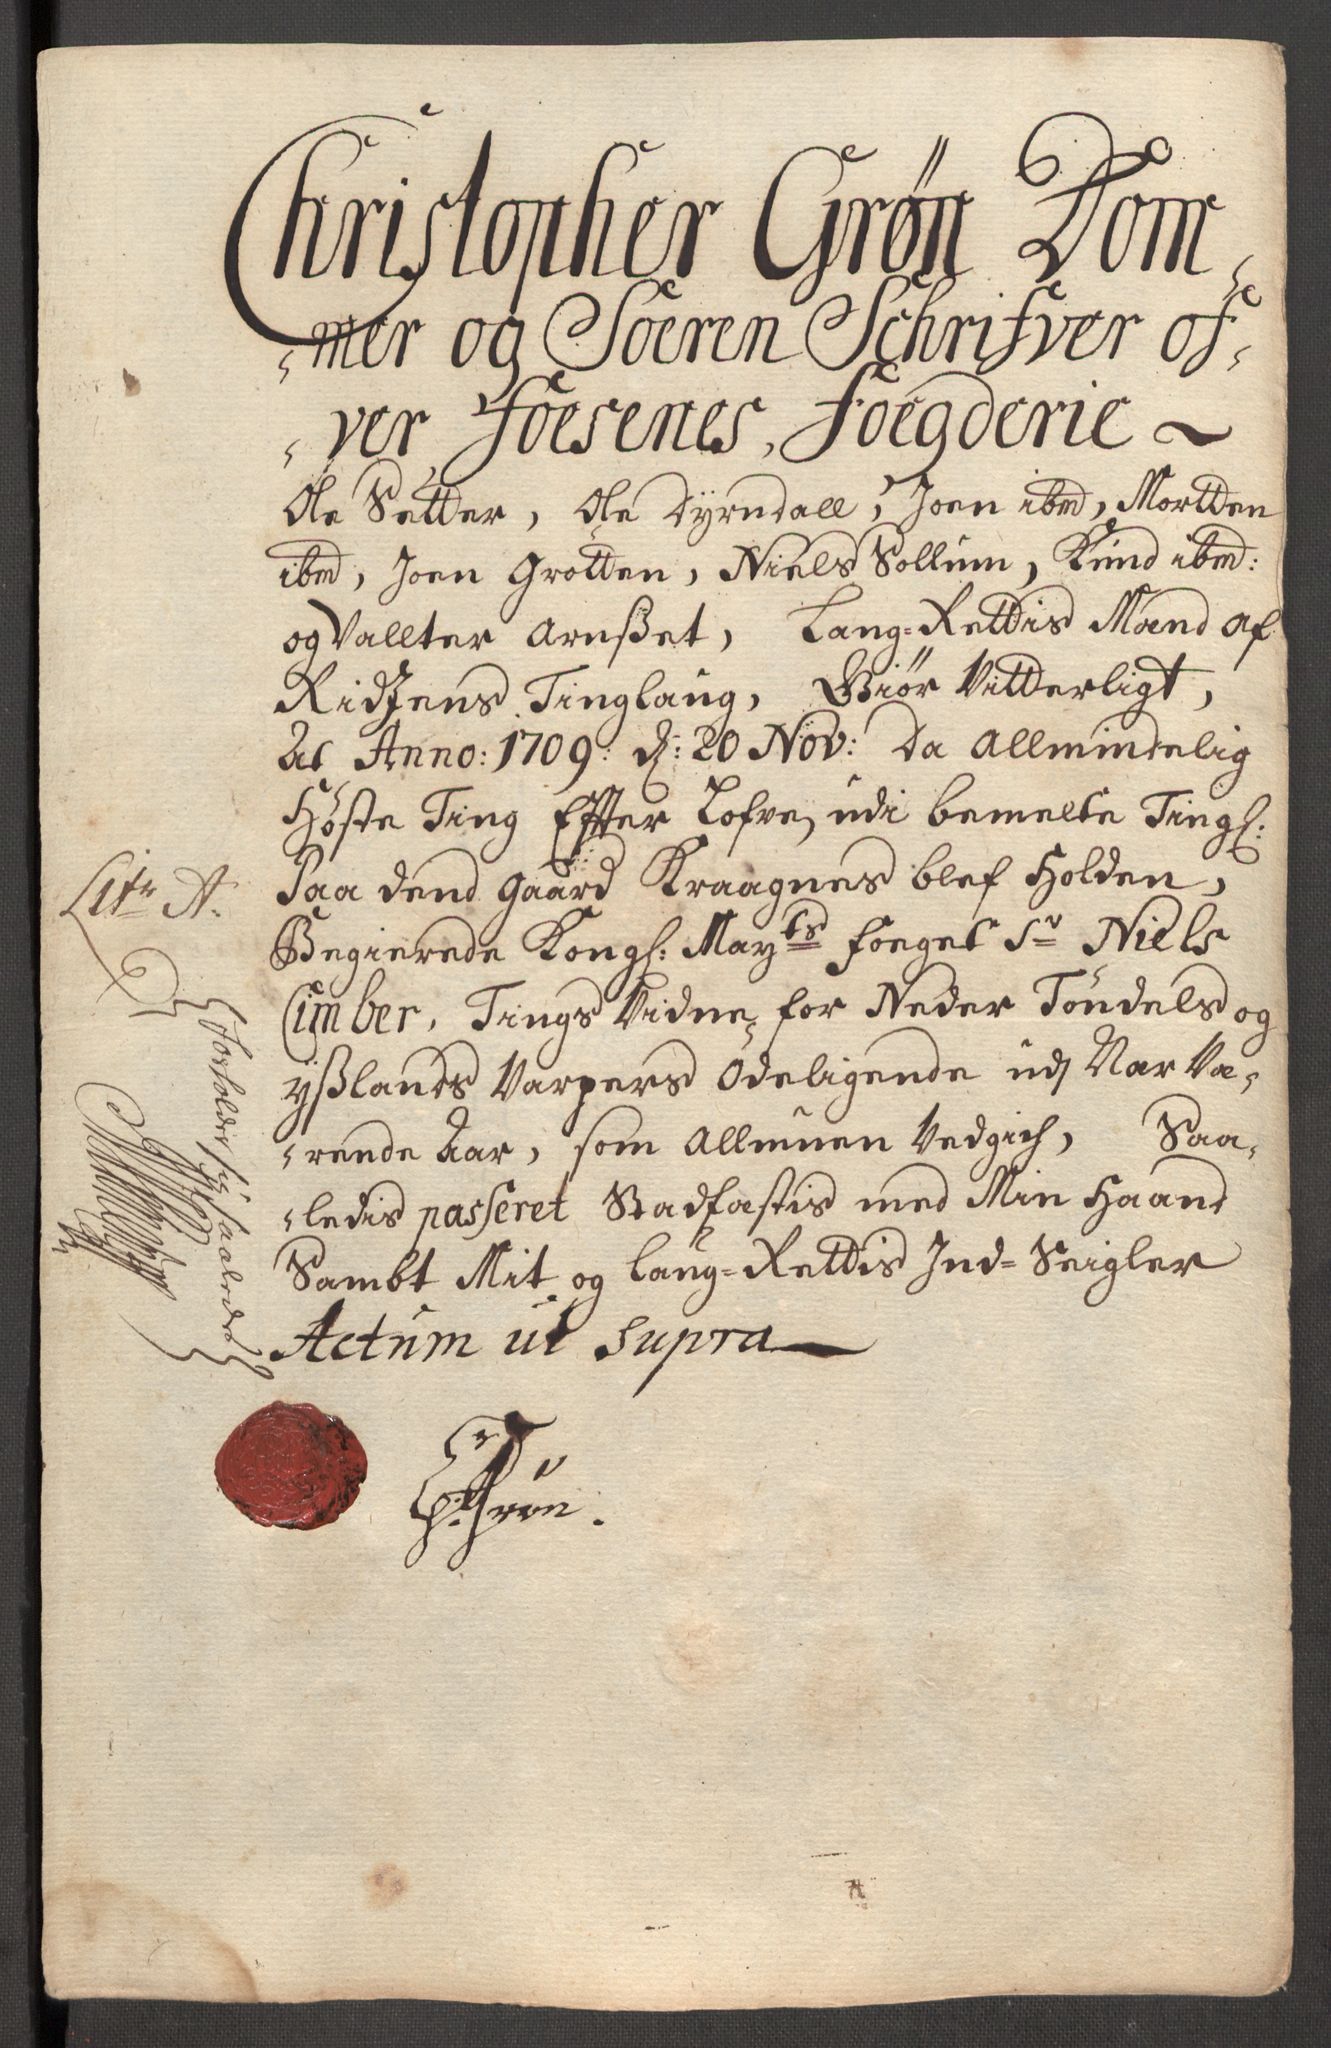 Christopher Grøn Dom-
-mer og Soeren Schrifver of-
-ver Foesenes, Foegderie
Ole Setter, Ole Dyrndall, Joen ibm, Mortten
ibm, Joen Grotten, Niels Sollum, Knud ibm:
og Vallter Arnßet, Laug-Rettis Mænd af
Ridzens Tinglaug, Giør Vitterligt,
At Anno: 1709: d: 20 Nov: Da Allmindelig
Høste Ting Effter Lofven, udi bemelte Tingl:
Paa dend Gaard Kraagnes blef Holden,
Begierede Kongl: Mayts Foeget Sr Niels
Cimber, Tings Vidne, for Neder Tøndels og
yßlands Varpers Ödeligende udj Nær Væ-
-rende Aar, som Allmuen Vedgich, Saa-
-ledis passeret Stadfæstis med Min Haand
Sambt Mit og Laug-Rettis Ind-Seigler
Actum ut supra
Litr A.
Forholder sig saaledis
Ch: Grøn.